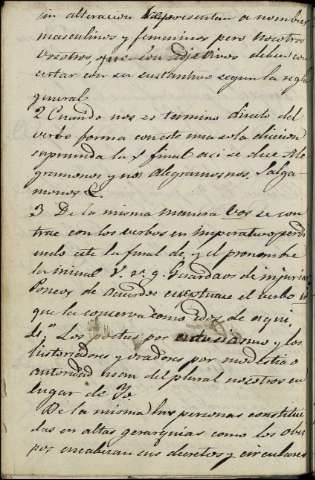 sin alteracion representan a nombres
masculinos y femeninos pero nosotros
vosotros, que son adjetivos deben con
certar con su sustantivo segun la regla
general
2 Cuando nos es termino directo del
verbo forma con este una sola diccion
suprimida la s final asi se dice Ale
gramonos y nos alegramos nos, Salga
monos &.
3 De la misma manera Vos se con
trae con los verbos en Imperativo perdi
endo este la final de, y el pronombre
la inicial V. v. g. Guardaos de injurias
Poneos de acuerdo exeptuase el verbo ir
que la conserva como idos de aqui
Los poetas por entusiasmo y los
historiadores y oradores por modestia o
autoridad usan del plural nosotros en
lugar de Yo.
De la misma las personas constitui
das en altas gerarquias como los obis
pos encabezan sus decretos y circulares